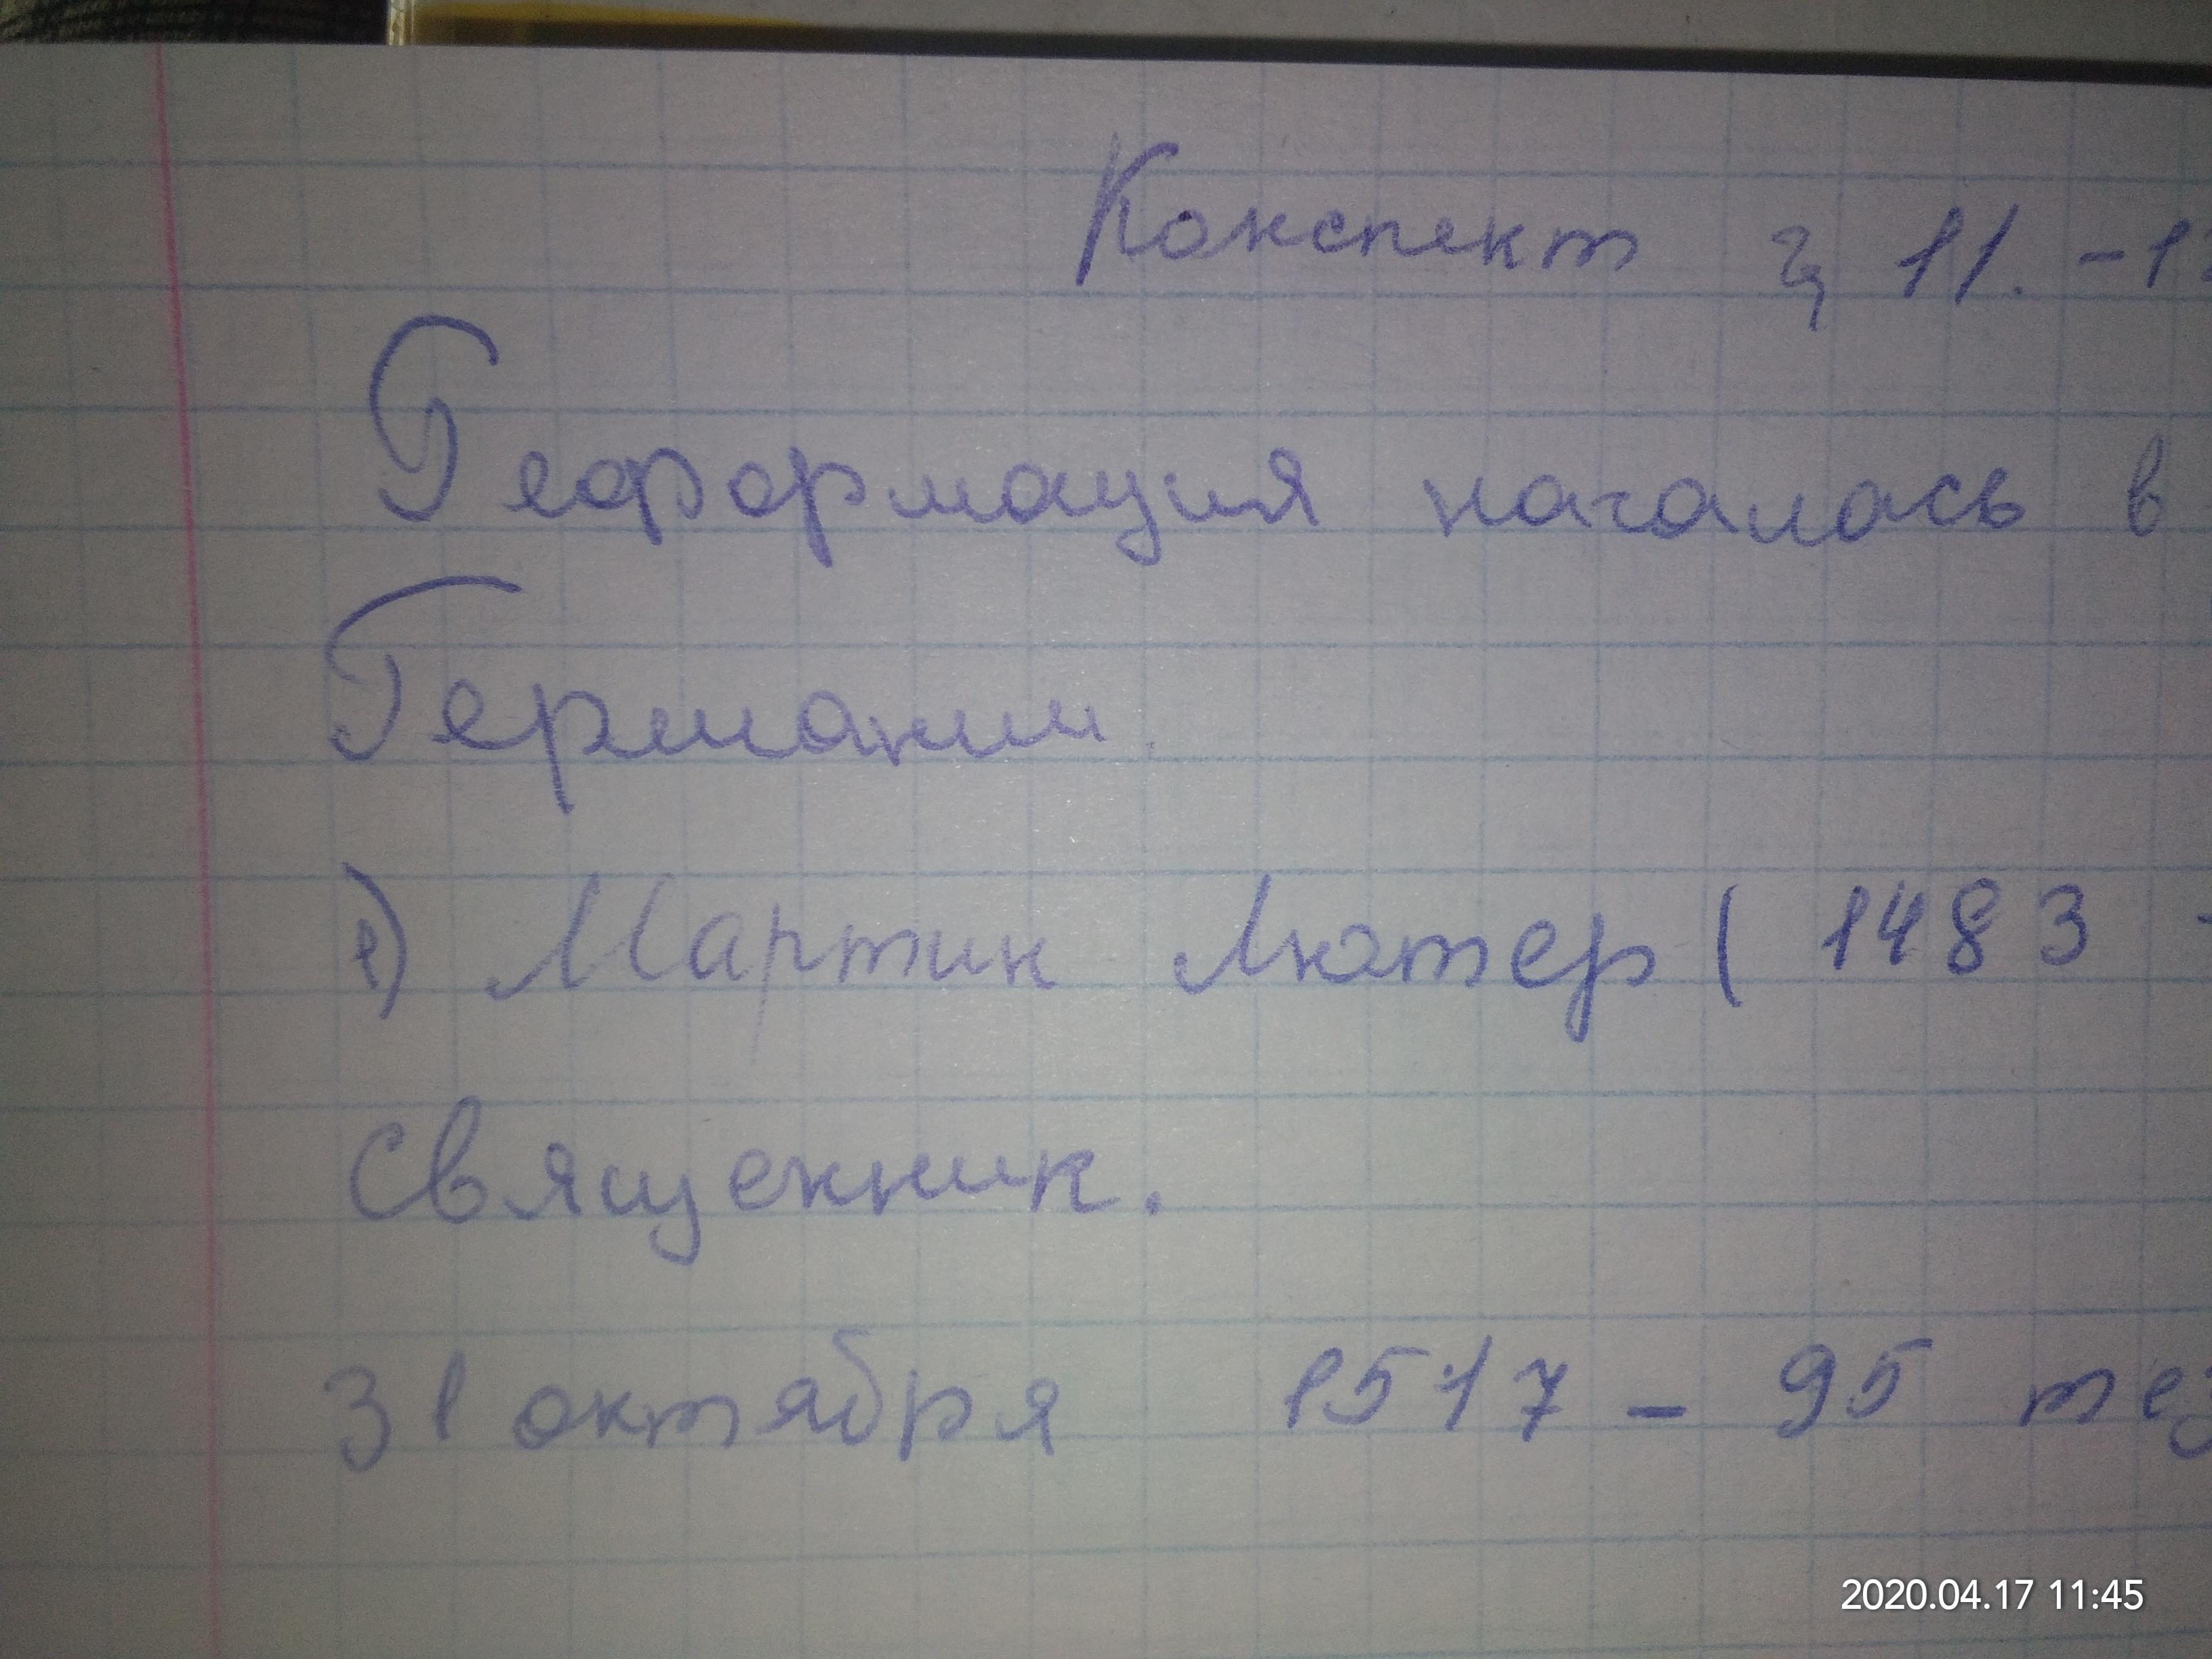 Конспект § 11.-1
Реформация началась в
Германии.
1) Мартин Лютер ( 1483 -
священник.
31 октября 1517 - 95 тез
2020.04.17 11:45